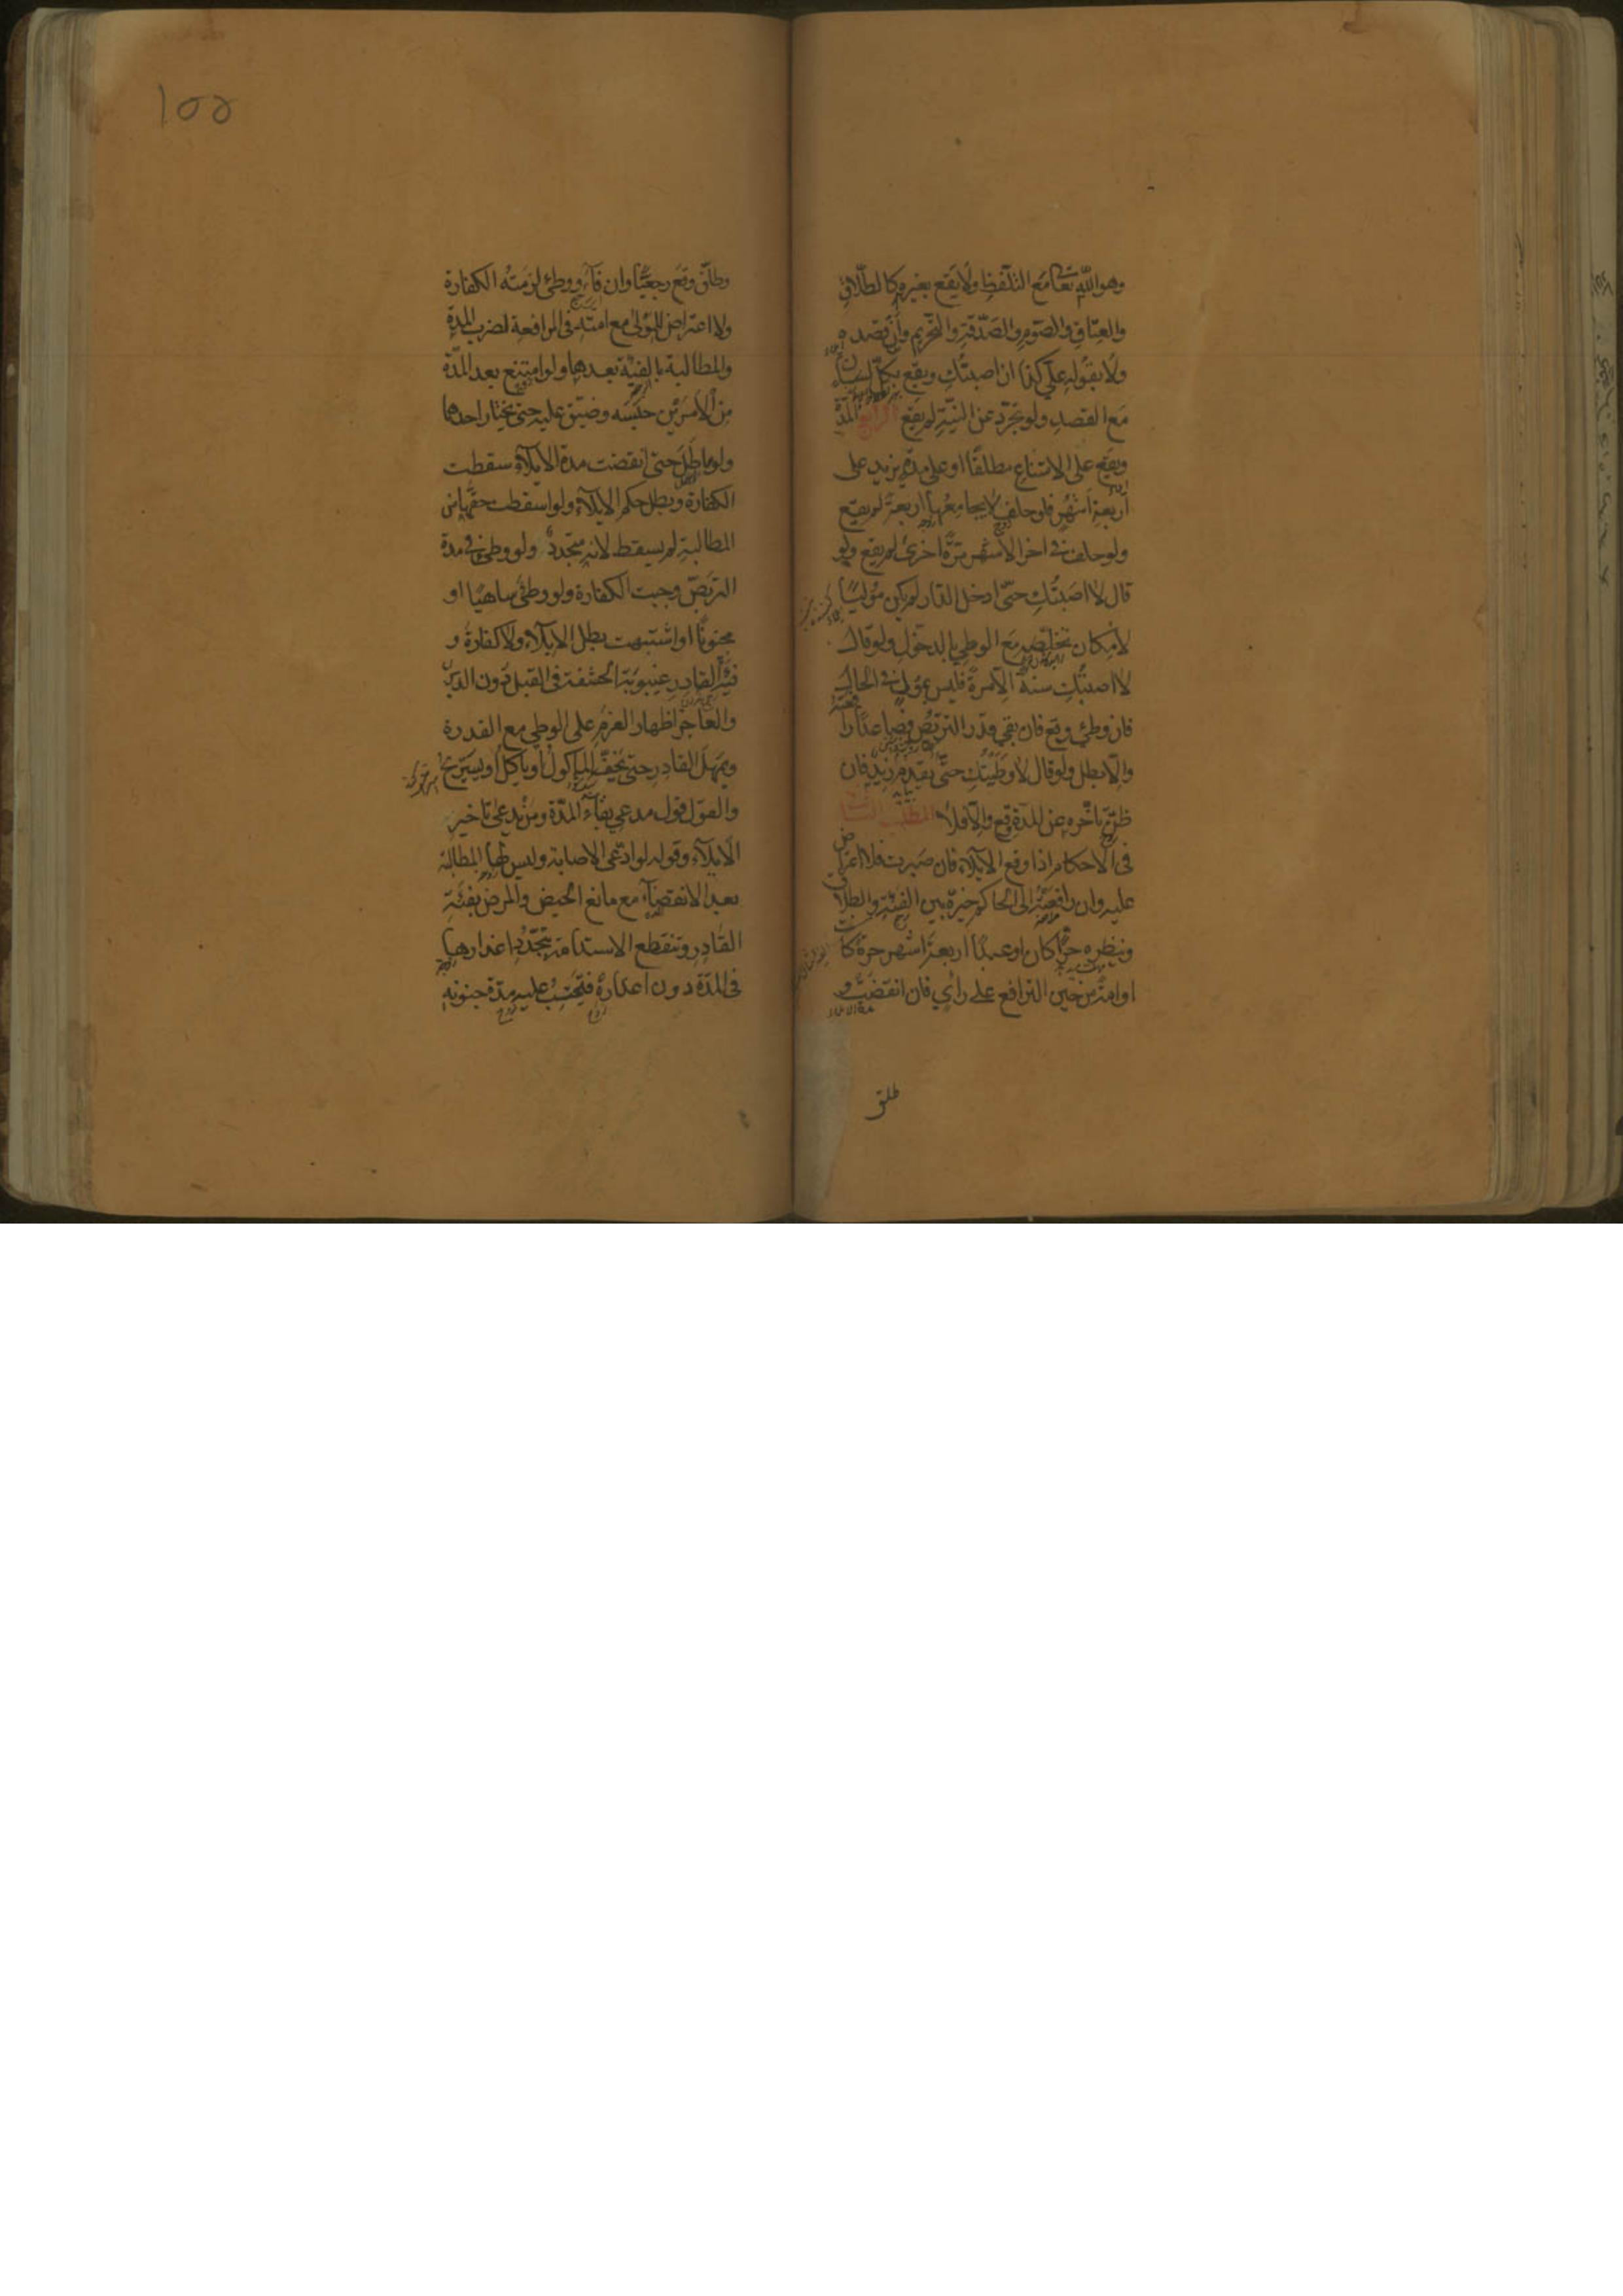 وهو الله تعالى مع التلفظ ولا يقع بغيره كالطلاق
والعتاق والصوم والصدقة والتحريم وان قصده
ولا بقوله علي كذا ان اصبتك ويقع بكل لسان
مع القصد ولو تجرد عن النية لم يقع الرابع المدة
ويقع على الامتناع مطلقا او على مدة يزيد على
اربعة اشهر فلو حلف لا يجامعها اربعة لم يقع
ولو حلف في اخر الاشهر مرة اخرى لم يقع ولو
قال لا اصبتك حتى ادخل الدار لم يكن موليا
لامكان تخلصه مع الوطي بالدخول ولو قال
لا اصبتك سنة الا مرة فليس بمول في الحال
فان وطئ وقع فان بقي قدر التربص فصاعدا
والا بطل ولو قال لا وطيتك حتى يقدم زيد فان
ظن تاخره عن المدة وقع والا فلا المطلب الثاني
في الاحكام اذا وقع الايلاء فان صبرت فلا اعتراض
عليه وان رافعته الى الحاكم خيره بين الفئة والطلاق
وينظره حرا كان او عبدا اربعة اشهر حرة كانت
او امة من حين الترافع على راي فان انقضت و
طلق
١٥٥
وطلق وقع رجعيا وان فاء ووطئ لزمته الكفارة
ولا اعتراض للمولى مع امته في المرافعة لضرب المدة
والمطالبة بالفئة بعدها ولو امتنع بعد المدة
من الامرين حبسه وضيق عليه حتى يختار احدهما
ولو ماطل حتى انقضت مدة الايلاء سقطت
الكفارة وبطل حكم الايلاء ولو اسقطت حقها من
المطالبة لم يسقط لانه متجدد ولو وطئ في مدة
التربص وجبت الكفارة ولو وطئ ساهيا او
مجنونا او اشتبهت بطل الايلاء ولا كفارة و
فئة القادر غيبوبة الحشفة في القبل دون الدبر
والعاجز اظهار العزم على الوطي مع القدرة
ويمهل القادر حتى يخف الماكول او ياكل او يستريح
والقول قول مدعي بقاء المدة ومن يدعي تاخير
الايلاء وقوله لو ادعى الاصابة وليس لها المطالبة
بعد الانقضاء مع مانع الحيض والمرض بفئة
القادر وتنقطع الاستدامة بتجدد اعذارها
في المدة دون اعذاره فتحتسب عليه مدة جنونه